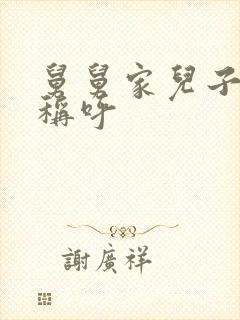 舅舅家兒子
稱呼
謝廣祥